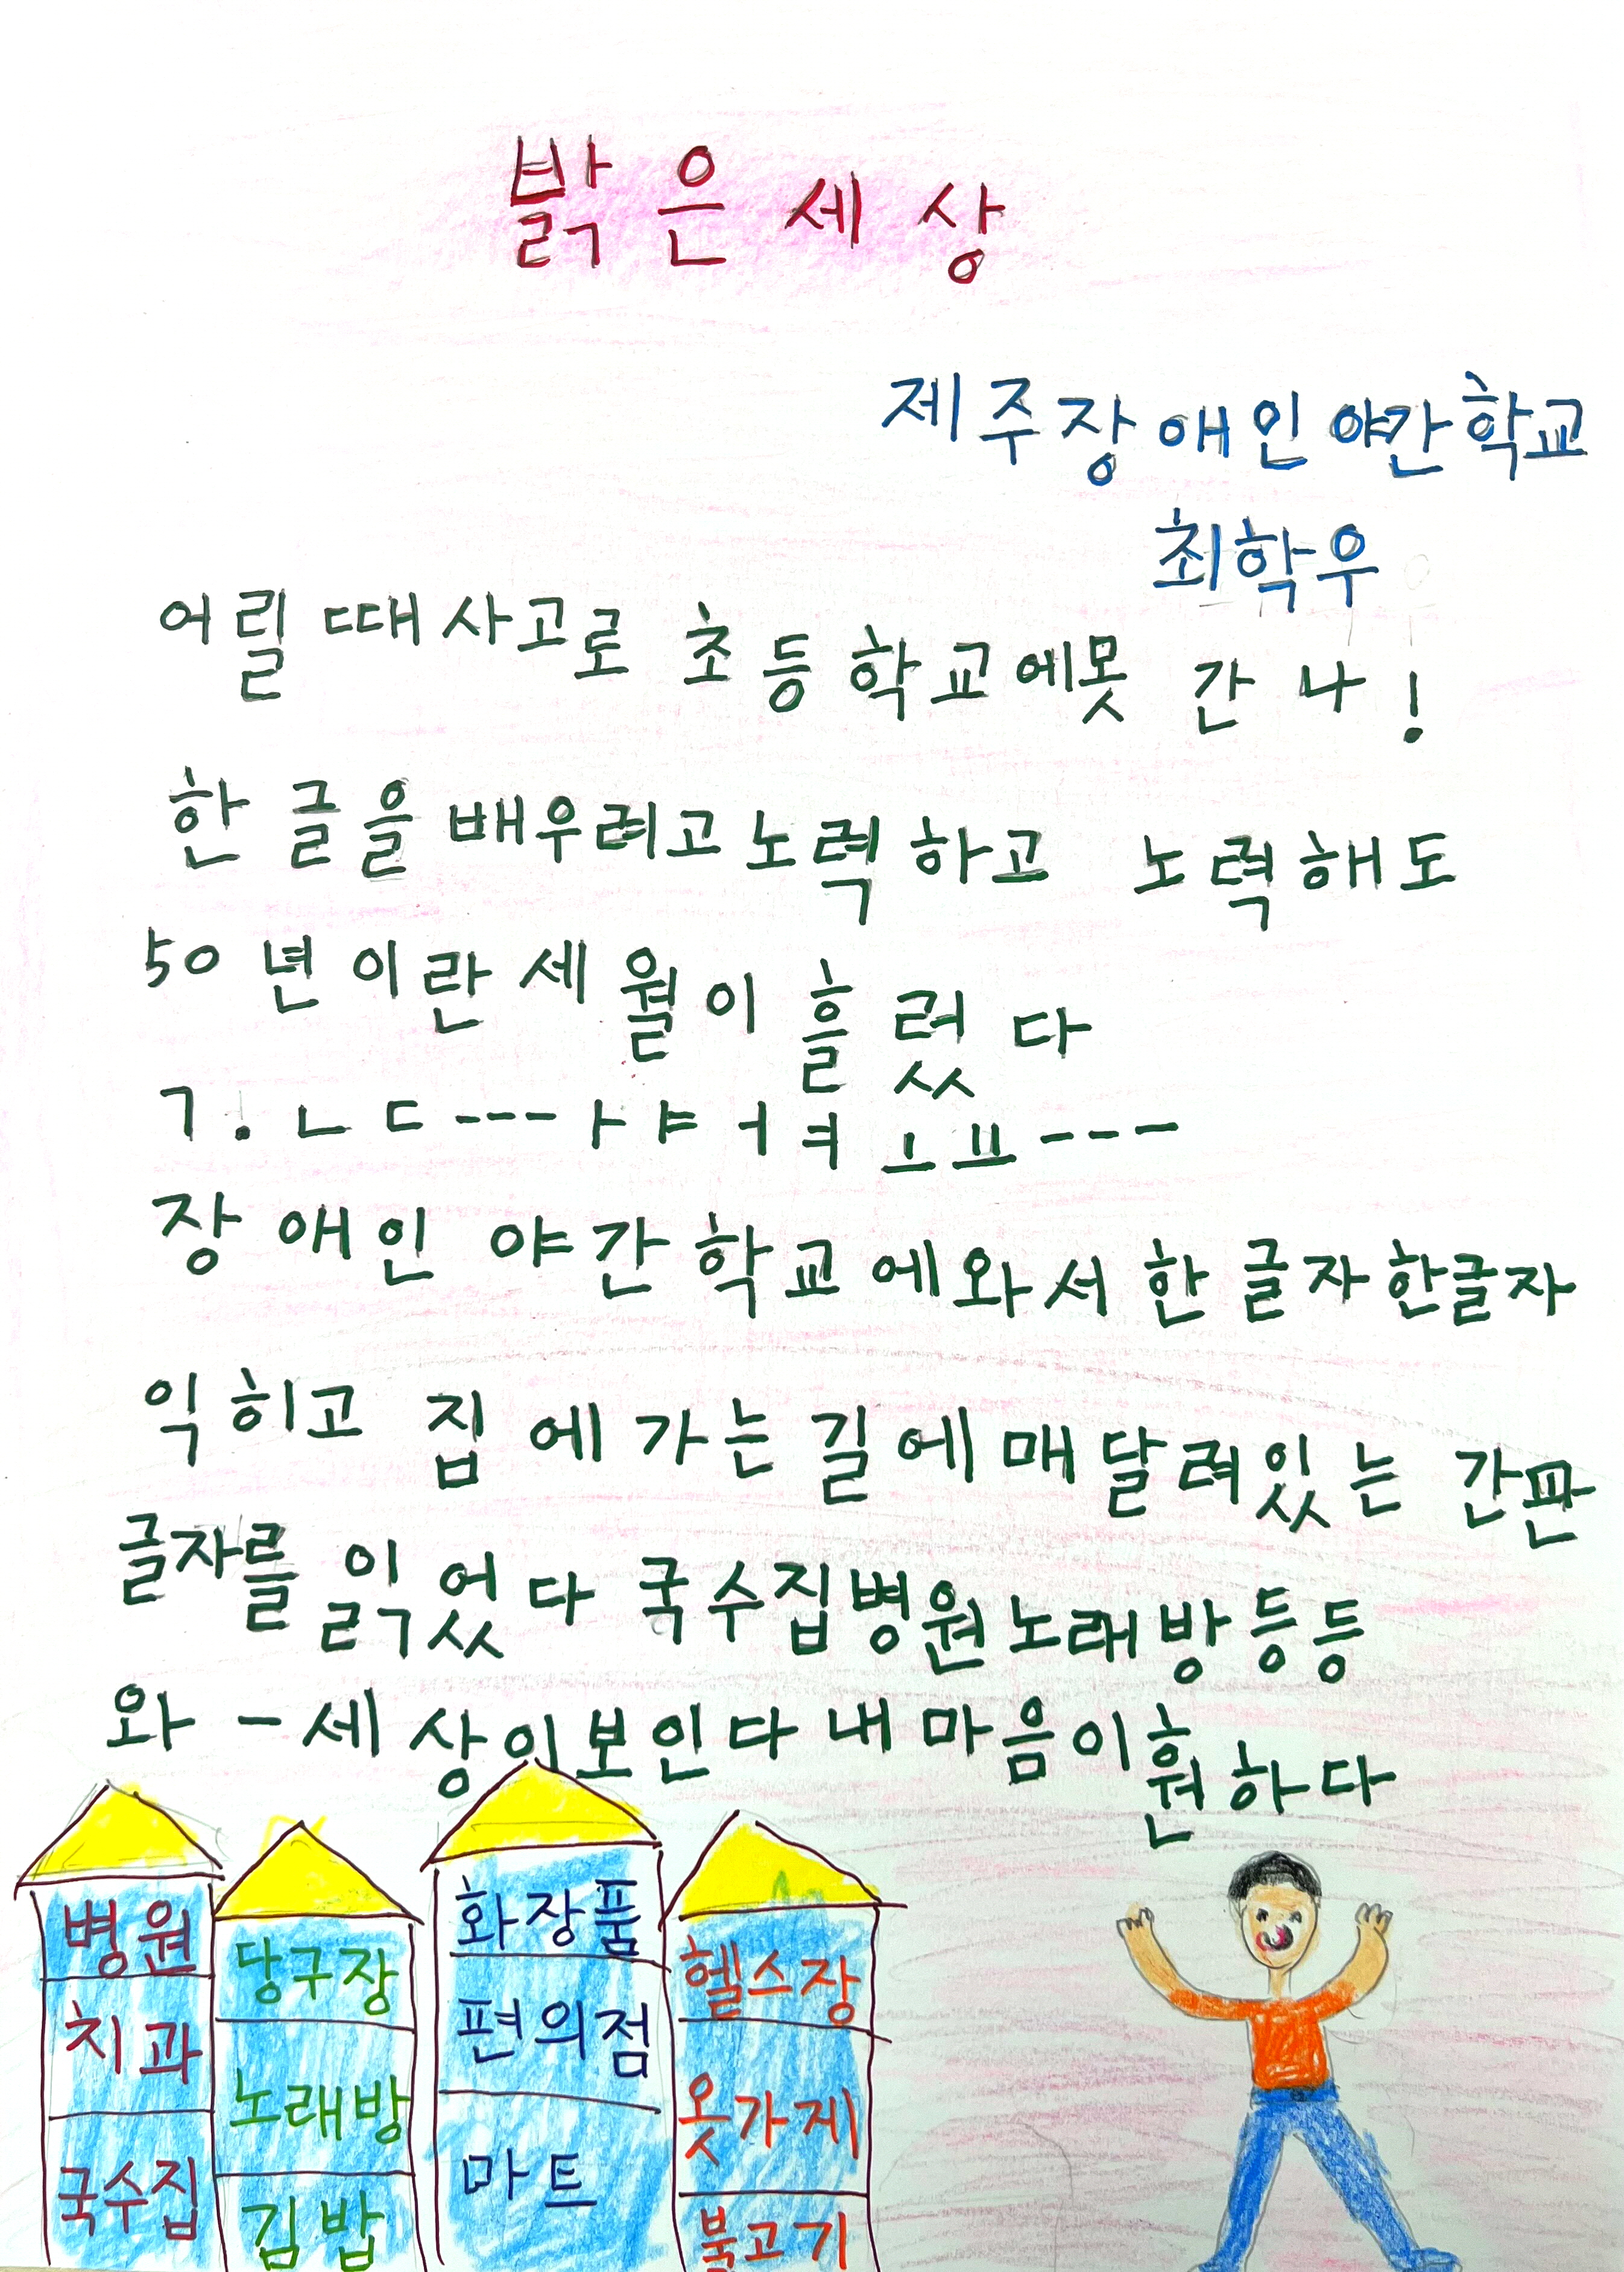 밝은 세상
제주장애인 야간학교
최학우
어릴 때 사고로 초등학교에 못 간 나!
한글을 배우려고 노력하고 노력해도
50년이란 세월이 흘렀다
ㄱ. ㄴ ㄷ --- ㅏ ㅑ ㅓ ㅕ ㅗ ㅛ ---
장애인 야간학교에 와서 한글자 한글자
익히고 집에 가는 길에 매달려있는 간판
글자를 읽었다 국수집 병원 노래방 등등
와 - 세상이 보인다 내 마음이 훤하다
병원
치과
국수집
당구장
노래방
김밥
화장품
편의점
마트
헬스장
옷가제
불고기